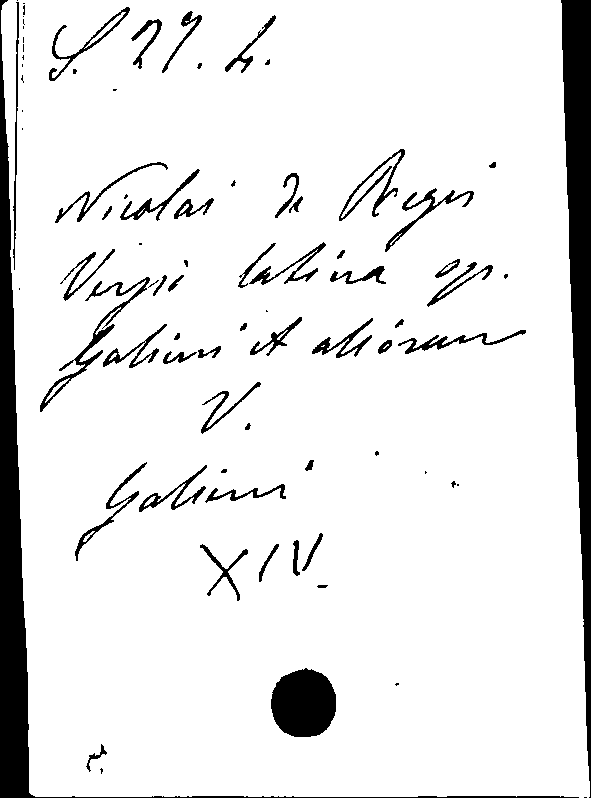 S. 27. 4.
Nicolai de Regis
Versio latina op.
Galieni et aliorum
V.
Galieni
XIV.